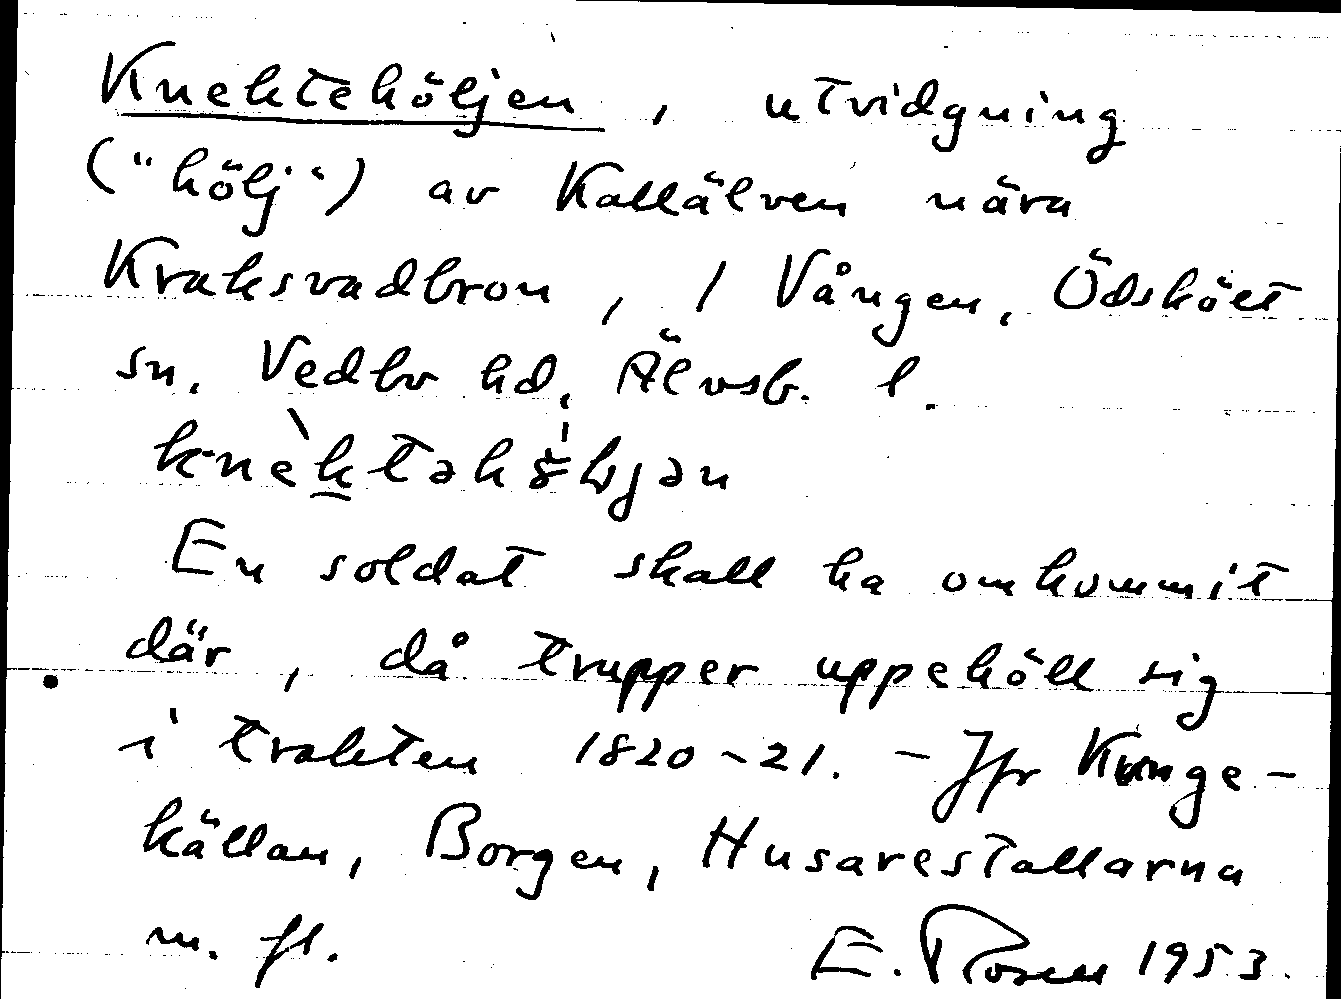 Knektehöljen, utvidgning
("hölj") av Kallälven nära
Kraksvadbron, / Vången, Ödsköłt
sn. Vedbo hd, Älvsb. l.
En soldat skall ha omkommit
där, då trupper uppehöll sig
i trakten 1820-21. - Jfr Kunge-
källan, Borgen, Husarestallarna
m. fl. E. Rosen 1953.